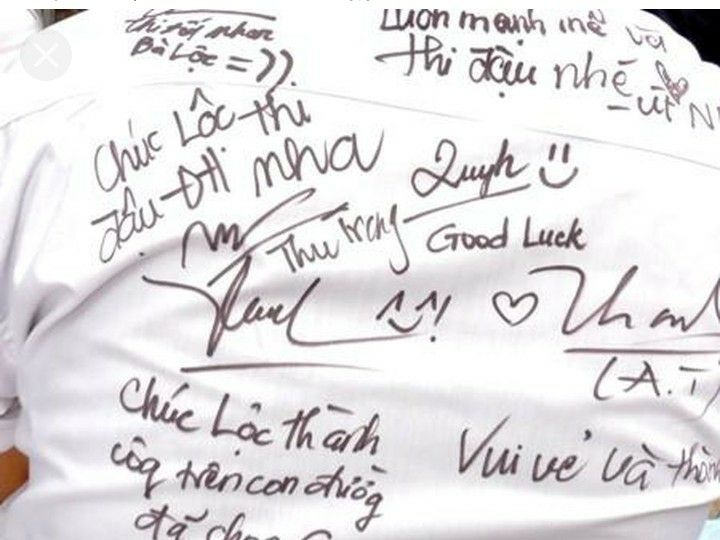 thi tốt nhan
Bà Lộc = )).
Luôn mạnh mẽ và
thi đậu nhé
- út
Chúc Lộc thi
đậu ĐH nha
Thu Trang
Quỳnh
Good Luck
^^!
♡
(A.T)
Chúc Lộc thành
côg trên con đườg
đã chọn
Vui vẻ và thàn